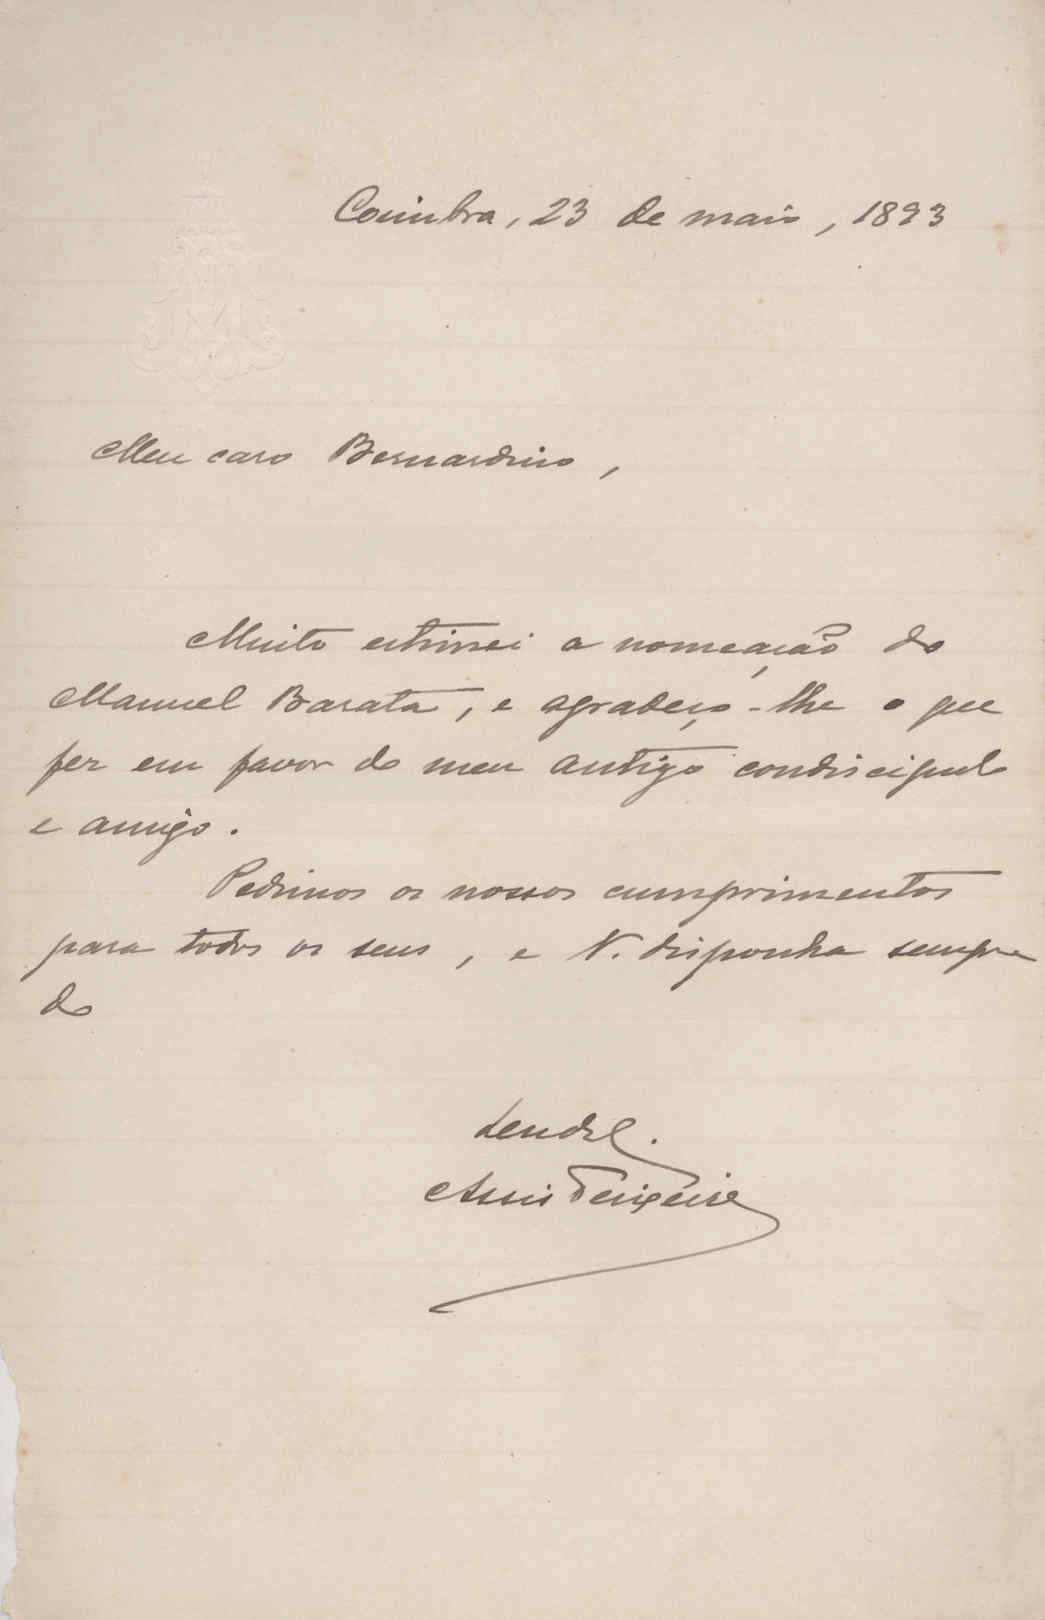 Coimbra, 23 de maio, 1893
Meu caro Bernardino,
Muito estimei a nomeação do
Manuel Barata, e agradeço-lhe o que
fez em favor do meu antigo condiscipulo
e amigo.
Pedimos os nossos cumprimentos
para todos os seus, e V. disponha sempre
do
Assis Teixeira